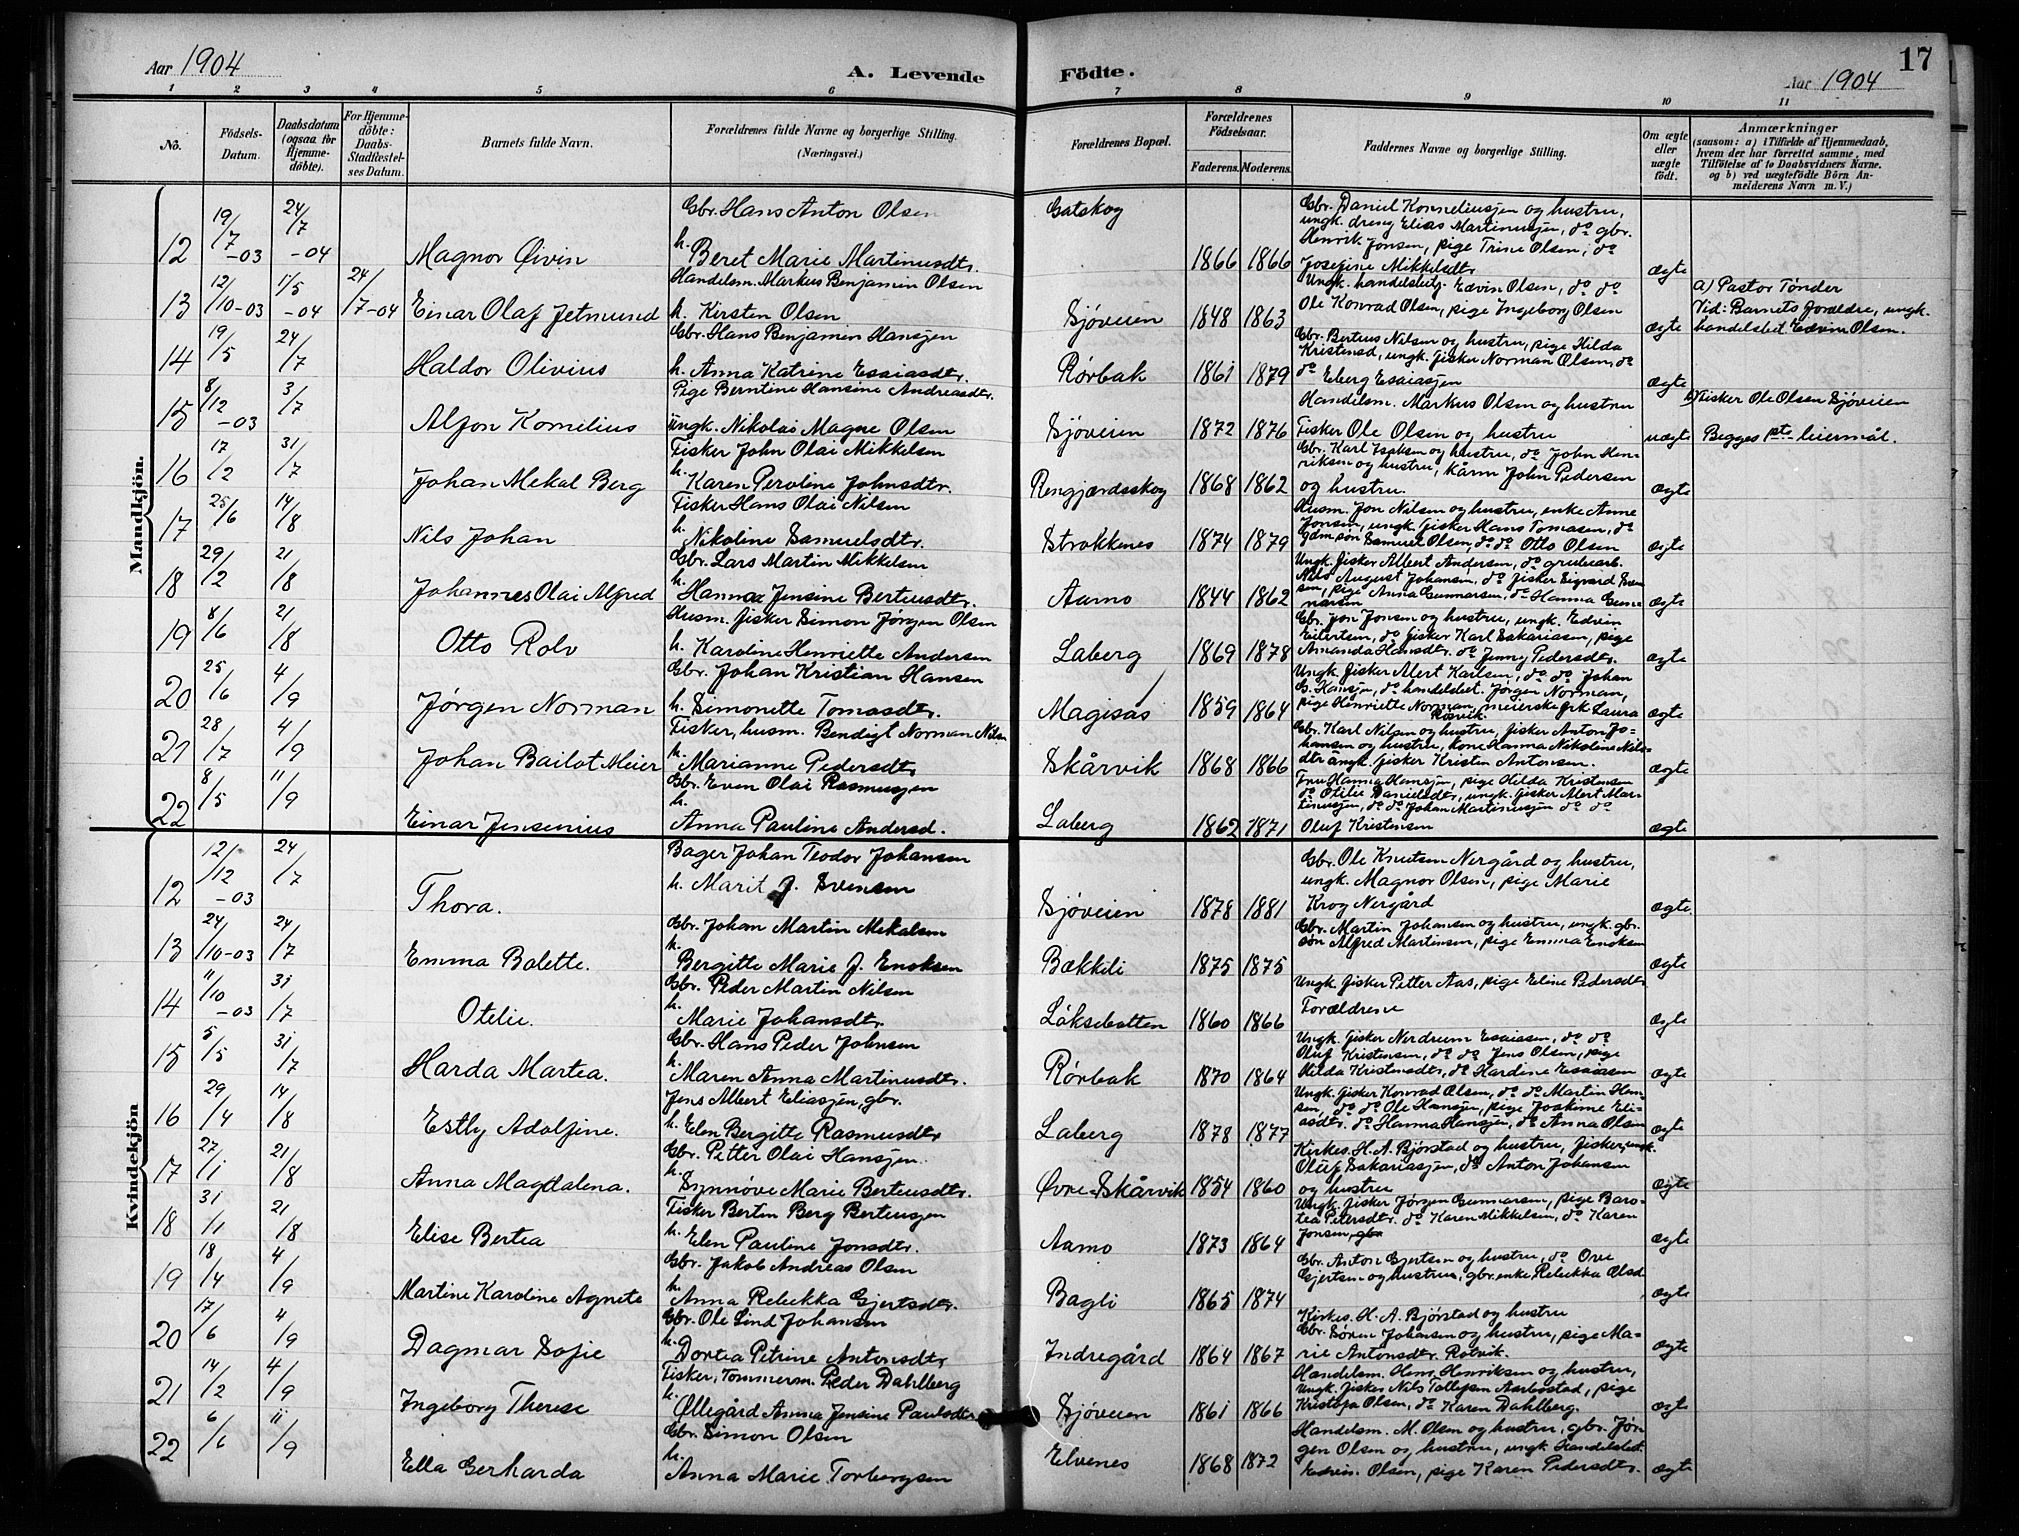 Aar 1904
A. Levende
Födte.
Aar 1904
17
1 2 3 4 5 6 7 8 9 10 11
No.
Födsels-Datum.
Daabsdatum (ogsaa for Hjemme-döbte).
For Hjemme-döbte: Daabs-Stadfæstel-ses Datum.
Barnets fulde Navn.
Forældrenes fulde Navne og borgerlige Stilling.
(Næringsvei.)
Forældrenes Bopæl.
Forældrenes Födselsaar.
Faderens. Moderens.
Faddernes Navne og borgerlige Stilling.
Om ægte eller uægte födt.
Anmærkninger
(saasom: a) i Tilfælde af Hjemmedaab, hvem der har forrettet samme, med Tilföielse af to Daabsvidners Navne, og b) ved uægtefödte Börn An-melderens Navn m. V.)
Mandkjön.
12 19/7-03 24/7-04 Magnor Øivin
Gbr. Hans Anton Olsen
h. Beret Marie Martinusdtr.
Gatskog 1866 1866
Gbr. Daniel Korneliusjen og hustru,
ungk. dreng Elias Martinusjen, do gbr.
Henrik Jonsen, pige Trine Olsen, do
Josefine Mikkelsdtr
ægte
13 12/10-03 1/5-04 24/7-04 Einar Olaf Jetmund
Handelsm. Markus Benjamin Olsen
h. Kirsten Olsen
Sjøveien 1848 1863
Ungk. handelsbetj. Edvin Olsen, do do
Ole Konrad Olsen, pige Ingeborg Olsen
ægte
a) Pastor Tönder
Vid: Barnets forældre, ungk.
handelsbet Edvin Olsen.
14 19/5 24/7 Haldor Olivius
Gbr. Hans Benjamin Hansjen
h. Anna Katrine Esaiasdtr.
Rørbak 1861 1879
Gbr. Bertius Nilsen og hustru, pige Hilda
Kristensd, ungk. fisker Norman Olsen, do
do Eberg Esaiasjen
ægte
15 8/12-03 3/7 Alfon Kornelius
Pige Berntine Hansine Andreasdtr.
Ungk. Nikolai Magne Olsen
Sjøveien 1872 1876
Handelsm. Markus Olsen og hustru
Fisker Ole Olsen og hustru
uægte
b) Fisker Ole Olsen Sjøveien
Begges pte leiermål.
16 17/2 31/7 Johan Mekal Berg
Fisker John Olai Mikkelsen
h. Karen Peroline Johnsdtr.
Rengjærdsskog 1868 1862
Gbr. Karl Isaksen og hustru, do John Hen-
riksen og hustru, kårm John Pedersen
og hustru.
ægte
17 25/6 14/8 Nils Johan
Fisker Hans Olai Nilsen
h. Nikoline Samuelsdtr.
Strokkenes 1874 1879
Husm. Jon Nilsen og hustru, enke Anne
Jonsen, ungk. fisker Hans Tomasen, do
gdm søn Samuel Olsen, do do Otto Olsen
ægte
18 29/2 21/8 Johannes Olai Alfred
Gbr. Lars Martin Mikkelsen
h. Hanna Jensine Bertiusdtr.
Aarno 1844 1862
Ungk. fisker Albert Andersen, do grubearb.
Nils August Johansen, do fisker Sigvard Sven
sen, pige Anna Gunnarsen, do Hanna Gun-
narsen
ægte
19 8/6 21/8 Otto Rolv
Husm. fisker Simon Jørgen Olsen
h. Karoline Henriette Andersen
Laberg 1869 1878
Gbr. Jon Jonsen og hustru, ungk. Edvin
Eilertsen, do fisker Karl Sakariasen, pige
Amanda Hansdtr. do Jenny Pedersdtr.
ægte
20 25/6 4/9 Jørgen Norman
Gbr. Johan Kristian Hansen
h. Simonette Tomasdtr.
Magisås 1859 1864
Ungk. fisker Alert Karlsen, do do Johan
G. Hansjen, do handelsbet. Jørgen Norman,
pige Henriette Norman, meierske frk Laura
Rotvik.
ægte
21 28/7 4/9 Johan Bailot Meier
Fisker, husm. Bendigt Norman Nilsen
h. Marianne Pedersdtr
Skårvik 1868 1866
Gbr. Karl Nilsen og hustru, fisker Anton Jo-
hansen og hustru, kone Hanna Nikoline Nils-
dtr ungk. fisker Kristen Antonsen.
ægte
22 8/5 11/9 Einar Jensenius
Gbr. Even Olai Rasmusjen
h. Anna Pauline Andersd.
Laberg 1862 1871
Fru Hanna Hansjen, pige Hilda Kristensen
do Otilie Danielsdtr, ungk. fisker Alert Mar-
tinusjen, do do Johan Martinusjen do do
Oluf Kristensen
ægte
Kvindekjön
12 12/12-03 24/7 Thora.
Bager Johan Teodor Johansen
h. Marit J. Svensen
Sjøveien 1878 1881
Gbr. Ole Knutsen Nergård og hustru,
ungk. Magnor Olsen, pige Marie
Krog Nergård
ægte.
13 24/10-03 24/7 Emma Balette.
Gbr. Johan Martin Mekalsen
h. Bergitte Marie J. Enoksen
Bækkeli 1875 1875
Gbr. Martin Johansen og hustru, ungk. gbr.
søn Alfred Martinsen, pige Emma Enoksen
ægte
14 11/10-03 31/7 Otelie.
Gbr. Peder Martin Nilsen
h. Marie Johansdtr.
Låksebotten 1860 1866
Ungk. fisker Petter Aas, pige Eline Pedersdtr
Forældrene
ægte
15 5/5 31/7 Harda Martea.
Gbr. Hans Peder Johnsen
h. Maren Anna Martinusdtr.
Rørbak 1870 1864
Ungk. fisker Nerdrum Esaiasen, do do
Oluf Kristensen, do do Jens Olsen, pige
Hilda Kristensdtr, do Hardine Esaiasen
ægte
16 29/4 14/8 Estly Adolfine.
Jens Albert Eliasjen, gbr.
h. Elen Bergitte Rasmusdtr
Laberg 1878 1877
Ungk. fisker Konrad Olsen, do do Martin Han-
sen, do do Ole Hansjen, pige Joakime Eli-
asdtr. do Hanna Hansjen, do Anna Olsen
ægte
17 27/1 21/8 Anna Magdalena.
Gbr. Petter Olai Hansjen.
h. Synnøve Marie Bertiusdtr.
Øvre-Skårvik 1854 1860
Kirkes. H. A. Bjørstad og hustru, fisker, ungk.
Oluf Sakariasjen, do Anton Johansen
og hustru
ægte
18 31/1 21/8 Elise Bertea
Fisker Bertin Berg Bertiusjen
h. Elen Pauline Jonsdtr.
Aarno 1873 1864
Ungk. fisker Jørgen Gunnarsen, pige Baro-
tea Petersdtr. do Karen Mikkelsen, do Karen
Jonsen, gbr
ægte
19 18/4 4/9 Martine Karoline Agnete
Gbr. Jakob Andreas Olsen
h. Anna Rebekka Gjertsdtr.
Bagli 1865 1874
Gbr. Anton Gjertsen og hustru, do Ove
Gjertsen og hustru, gbr. enke Rebekka Olsd
ægte
20 17/6 4/9 Dagmar Sofie
Gbr. Ole Lind Johansen
h. Dortea Petrine Antonsdtr
Indregård 1864 1867
Kirkes. H. A. Bjørstad og hustru
Gbr. Søren Johansen og hustru, pige Ma-
rie Antonsdtr. Rotvik.
ægte
21 14/2 4/9 Ingeborg Therese
Fisker, Tømmerm. Peder Dahlberg
h. Øllegård Anna Jensine Paulsdtr
Sjøveien 1861 1866
Handelsm. Hans Henriksen og hustru,
Ungk. fisker Nils Tollefsen Aarbostad, pige
Kristofa Olsen, do Karen Dahlberg.
ægte
22 6/6 11/9 Ella Gerharda
Gbr. Simon Olsen
h. Anna Marie Torbergsen
Elvenes 1868 1872
Handelsm. M. Olsen og hustru, gbr. Jør-
gen Olsen og hustru, ungk. Handelsbet.
Edvin Olsen, pige Karen Pedersdtr.
ægte